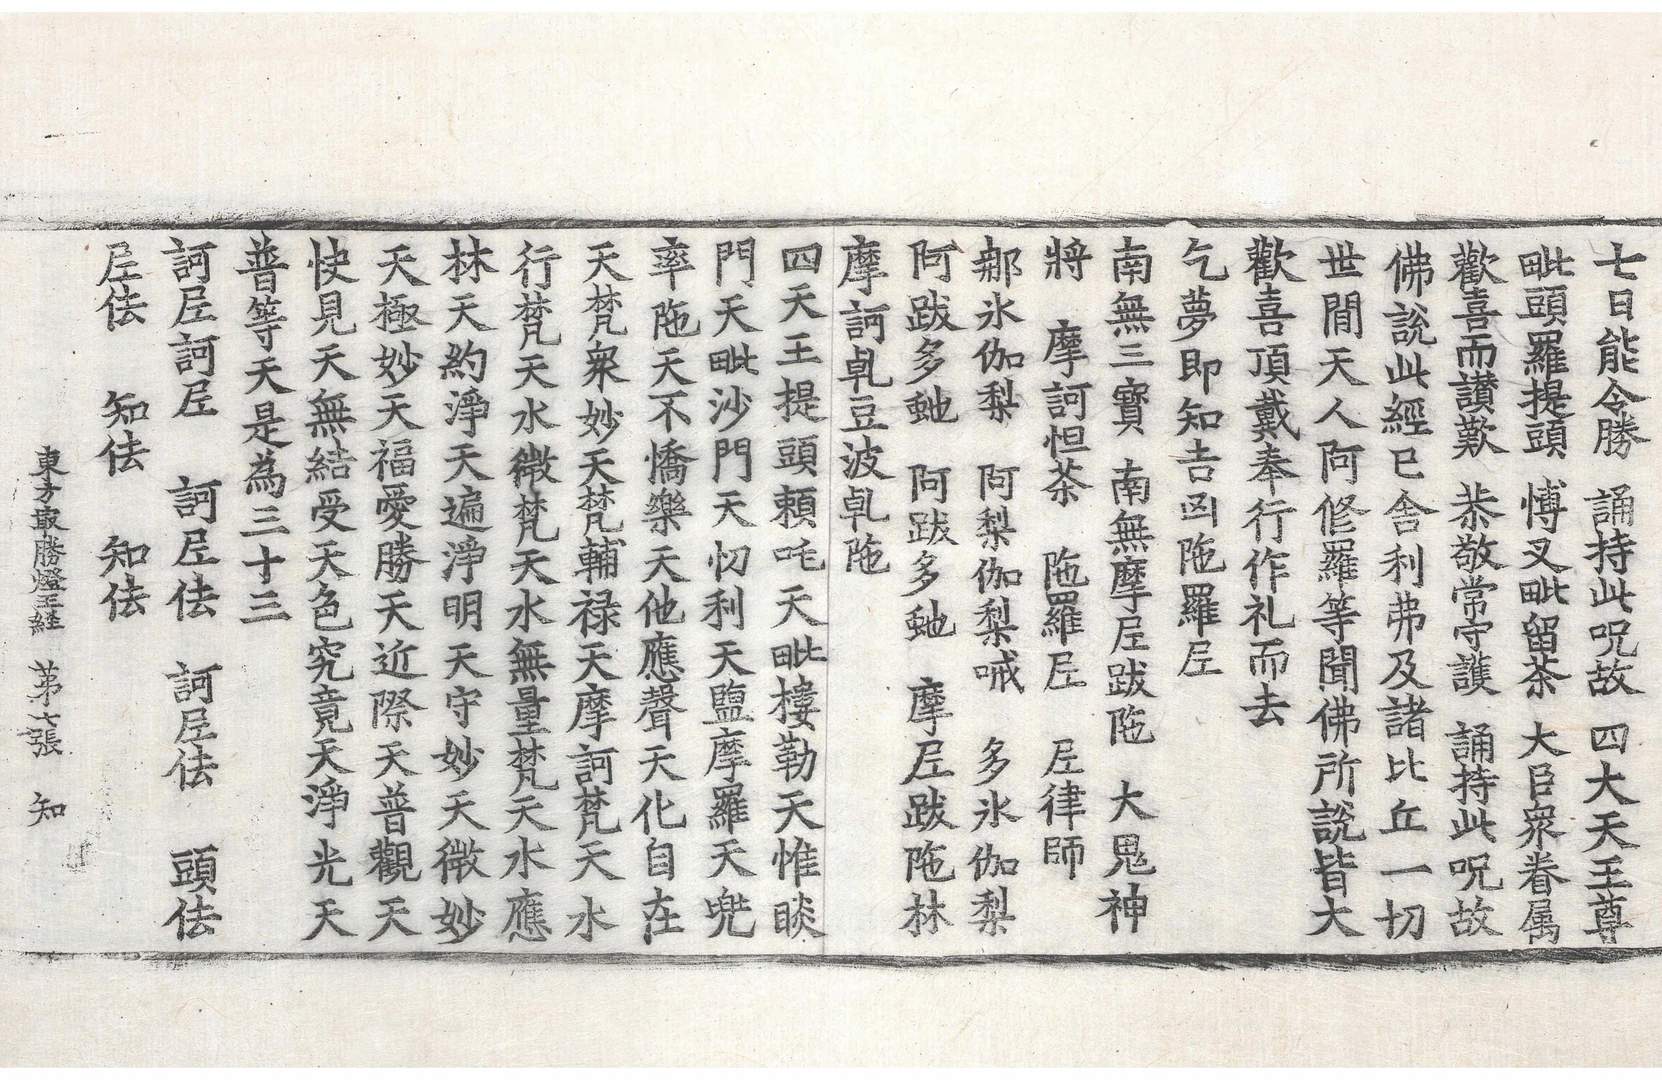 七日能令勝　誦持此呪故　四大天王尊
毗頭羅提頭　愽叉毗留茶　大臣衆眷属
歡喜而讃歎　恭敬常守護　誦持此呪故
佛說此經已舍利弗及諸比丘一切
世閒天人阿修羅等聞佛所說皆大
歡喜頂戴奉行作礼而去
乞夢即知吉凶陁羅𡰱
南無三寶　南無摩𡰱跋陁　大鬼神
將　摩訶怛茶　陁羅𡰱　𡰱律師
那氷伽梨　阿梨伽梨㖑　多氷伽梨
阿跋多虵　阿跋多虵　摩𡰱跋陁林
摩訶乹豆波乹陁
四天王提頭頼吒天毗樓勒天惟睒
門天毗沙門天忉利天鹽摩羅天兠
率陁天不憍樂天他應聲天化自在
天梵衆妙天梵輔禄天摩訶梵天水
行梵天水微梵天水無量梵天水應
林天約淨天遍淨明天守妙天微妙
天極妙天福愛勝天近際天普觀天
快見天無結受天色究竟天淨光天
普等天是為三十三
訶𡰱訶𡰱　訶𡰱佉　訶𡰱佉　頭佉
𡰱佉　知佉　知佉
東方㝡勝燈王経　第七張　知